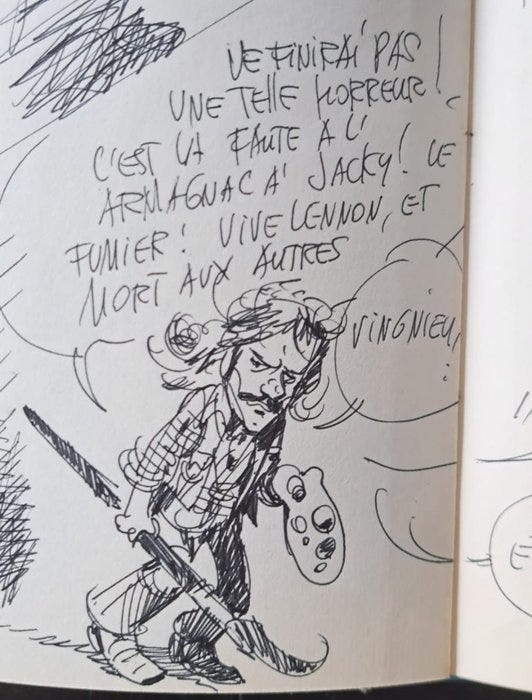 NE FINIRAI PAS
UNE TELLE HORREUR!
C'EST LA FAUTE A L'
ARMAGNAC A' JACKY! LE
FUMIER! VIVE LENNON, ET
MORT AUX AUTRES
VINGNIEU,